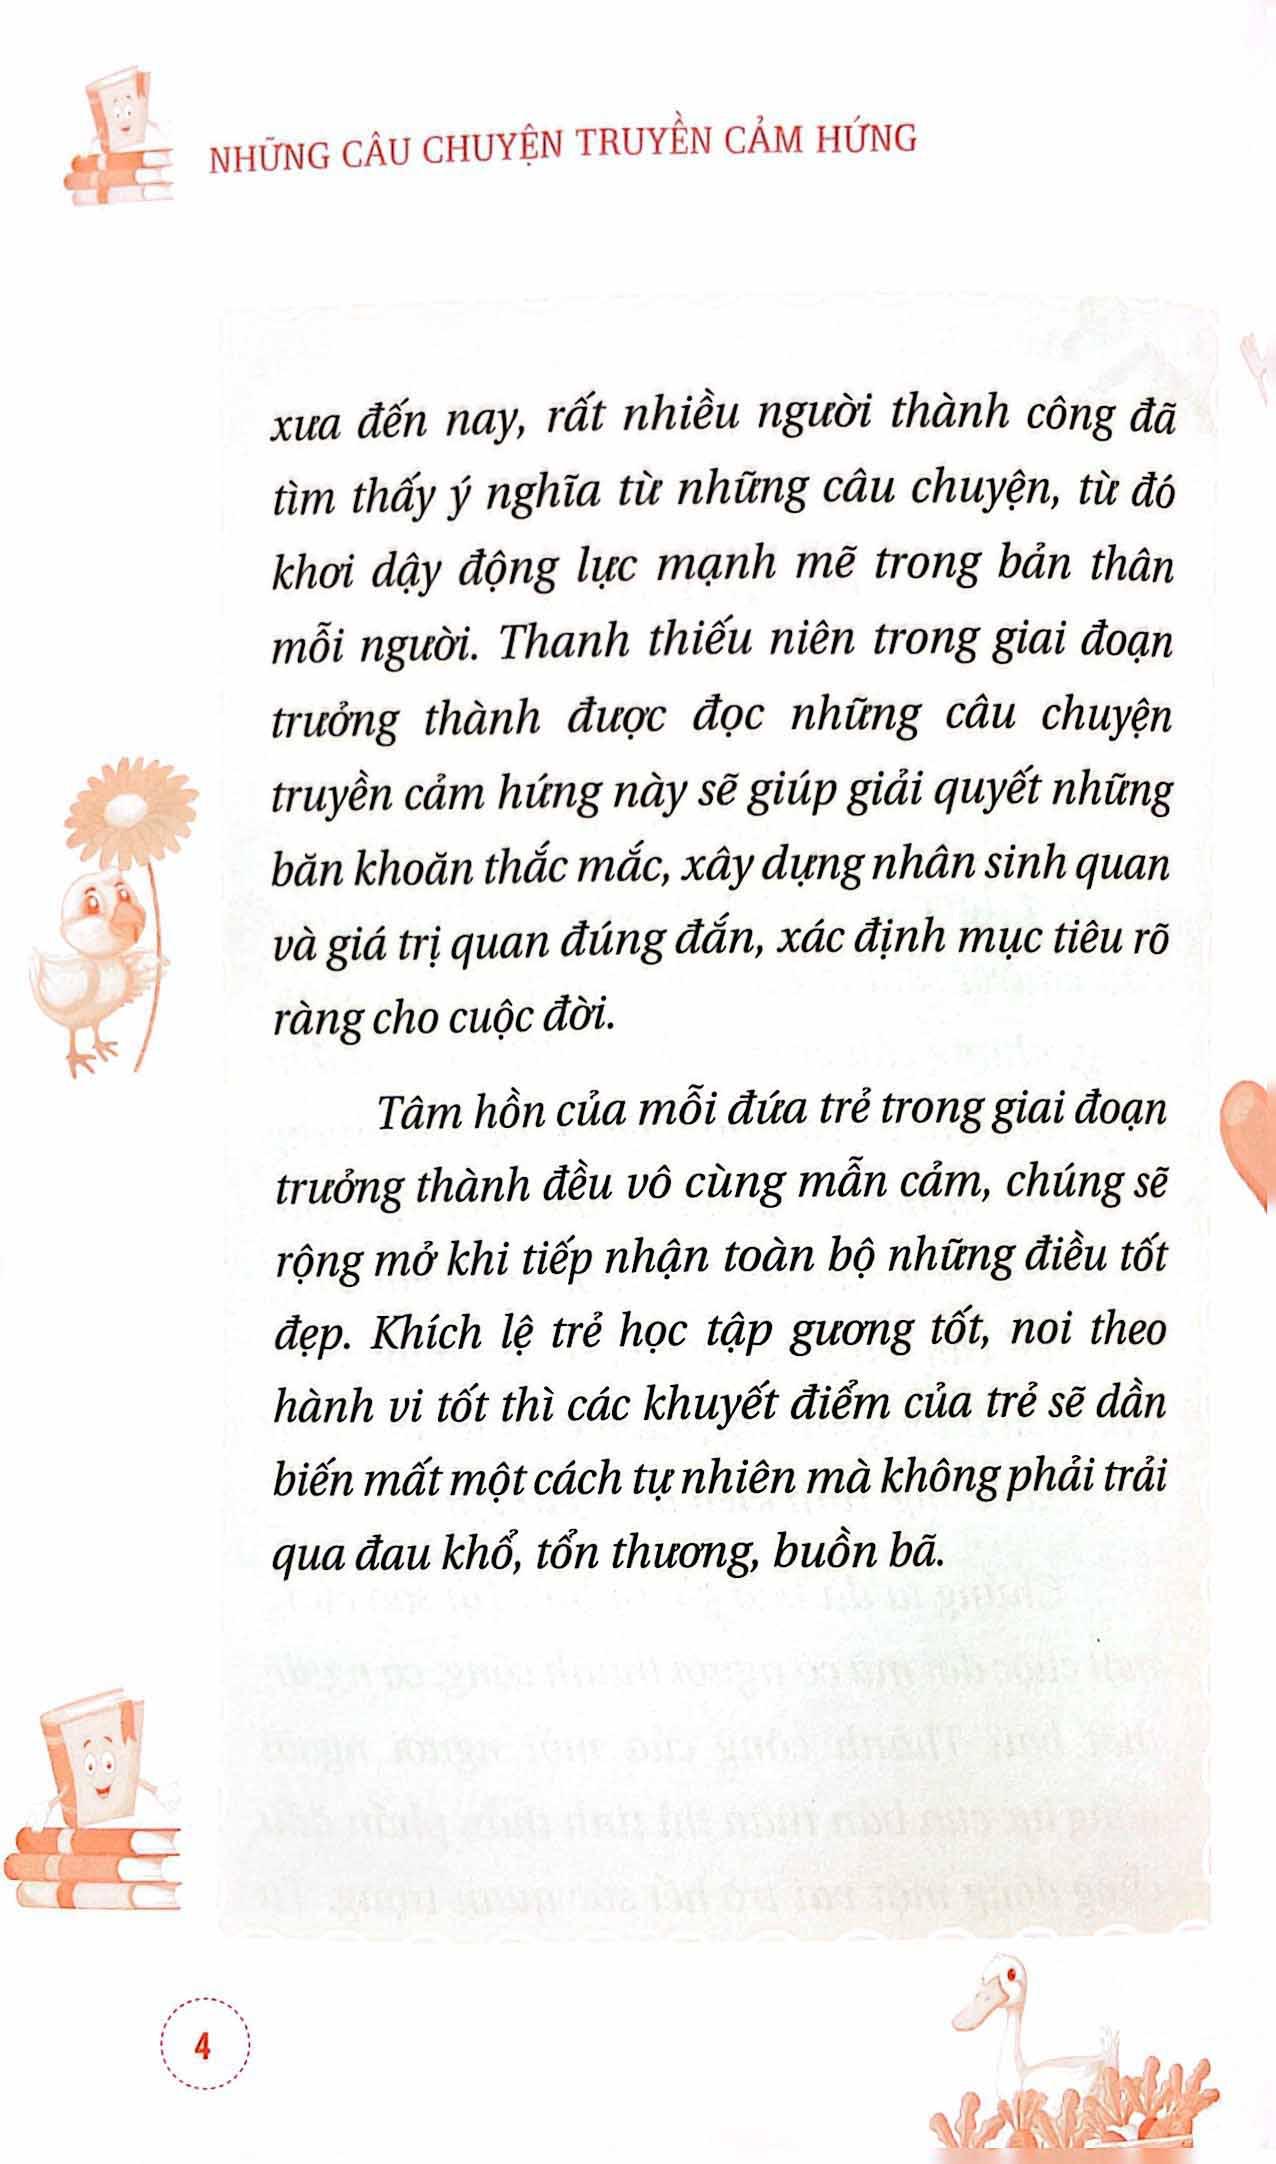 NHỮNG CÂU CHUYỆN TRUYỀN CẢM HỨNG
xưa đến nay, rất nhiều người thành công đã
tìm thấy ý nghĩa từ những câu chuyện, từ đó
khơi dậy động lực mạnh mẽ trong bản thân
mỗi người. Thanh thiếu niên trong giai đoạn
trưởng thành được đọc những câu chuyện
truyền cảm hứng này sẽ giúp giải quyết những
băn khoăn thắc mắc, xây dựng nhân sinh quan
và giá trị quan đúng đắn, xác định mục tiêu rõ
ràng cho cuộc đời.
Tâm hồn của mỗi đứa trẻ trong giai đoạn
trưởng thành đều vô cùng mẫn cảm, chúng sẽ
rộng mở khi tiếp nhận toàn bộ những điều tốt
đẹp. Khích lệ trẻ học tập gương tốt, noi theo
hành vi tốt thì các khuyết điểm của trẻ sẽ dần
biến mất một cách tự nhiên mà không phải trải
qua đau khổ, tổn thương, buồn bã.
4